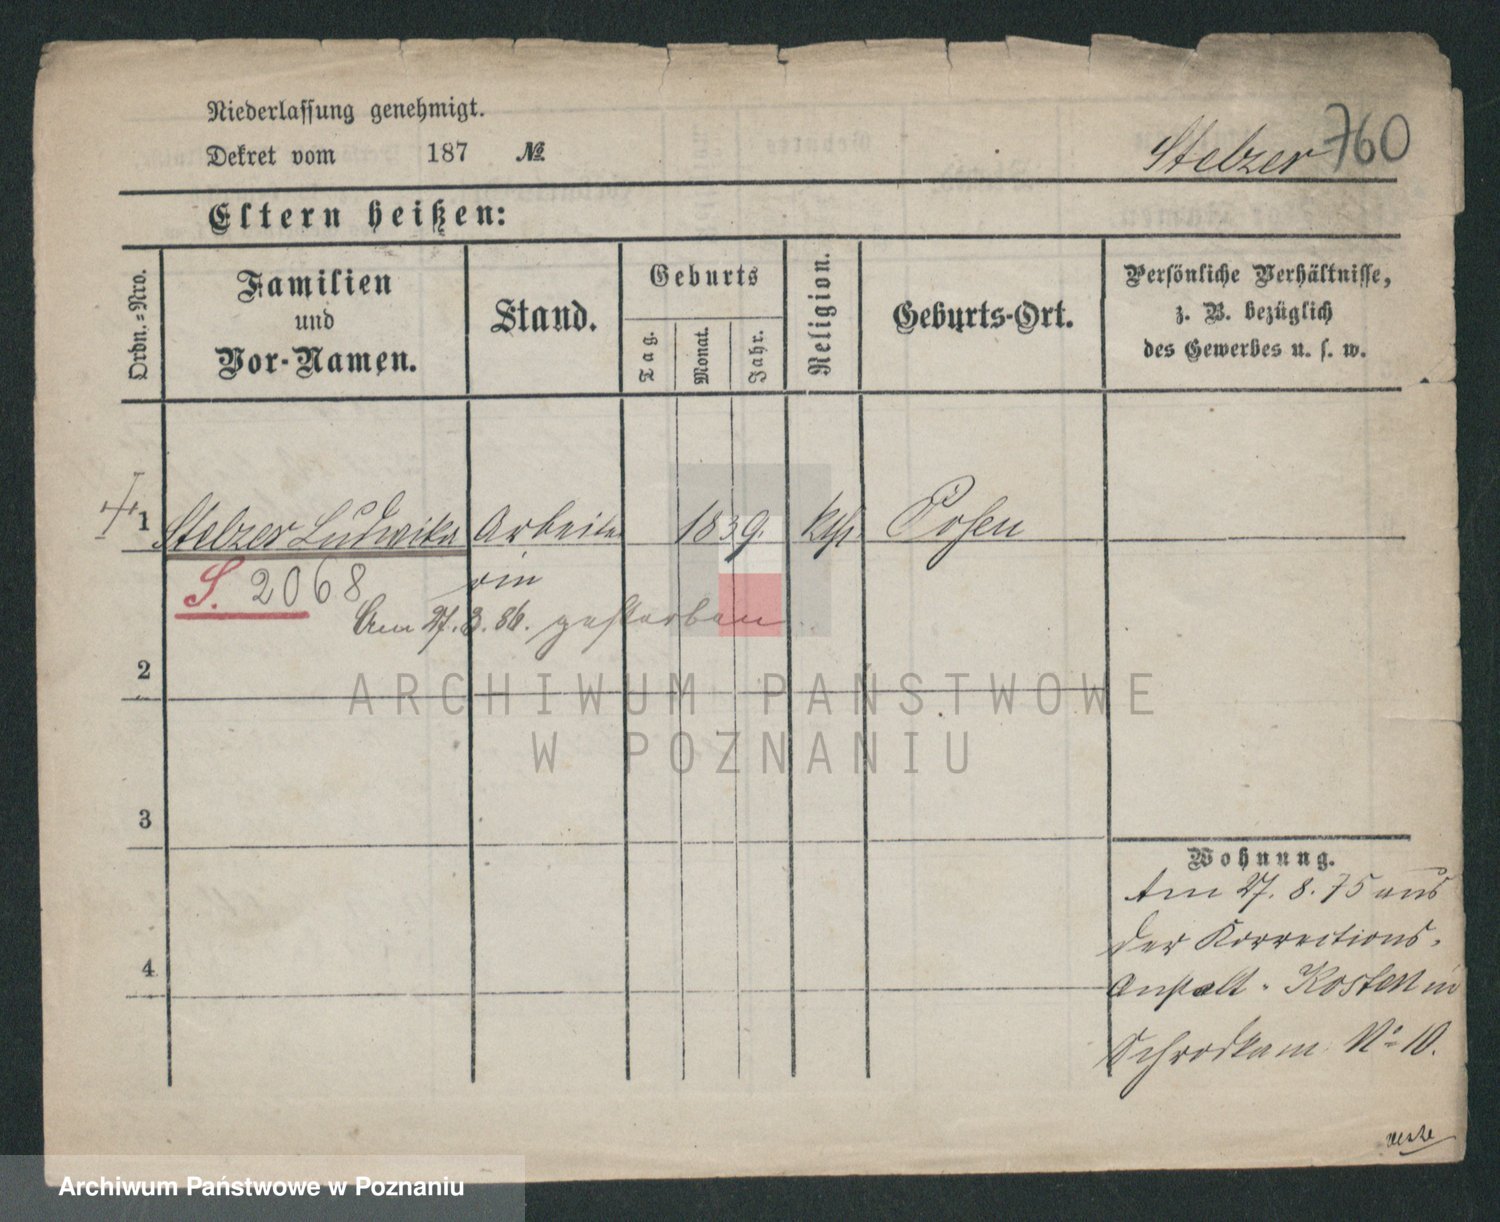 Niederlassung genehmigt.
Dekret vom 187 №
Stelzer 760
Eltern heißen:
Ordn.-Nro.
Familien
und
Vor-Namen.
Stand.
Geburts
Tag.
Monat.
Jahr.
Religion.
Geburts-Ort.
Persönliche Verhältnisse,
z. B. bezüglich
des Gewerbes u. s. w.
1 Stelzer Ludwika Arbeite 1839. kth. Posen
S. 2068 rin
Am 27.3.86. gestorben
2
ARCHIWUM PAŃSTWOWE
W POZNANIU
3
Wohnung.
Am 27. 8. 75 aus
der Korrections-
Anstalt - Kosten in
4
Schrodkam. No 10.
Archiwum Państwowe w Poznaniu